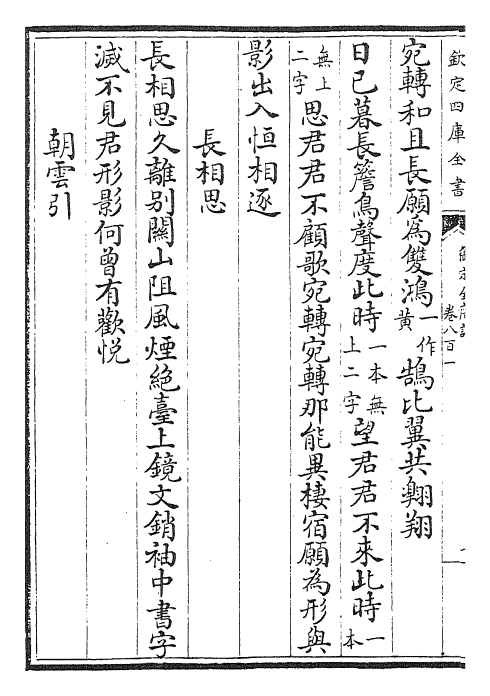 欽定四庫全書
卷八百一
宛轉和且長願為雙鴻一作黃鵠比翼共翺翔
日已暮長簷鳥聲度此時一本無上二字望君君不來此時一本
無上二字思君君不顧歌宛轉宛轉那能異棲宿願為形與
影出入恒相逐
長相思
長相思久離别關山阻風煙絶臺上鏡文銷袖中書字
滅不見君形影何曾有歡悦
朝雲引